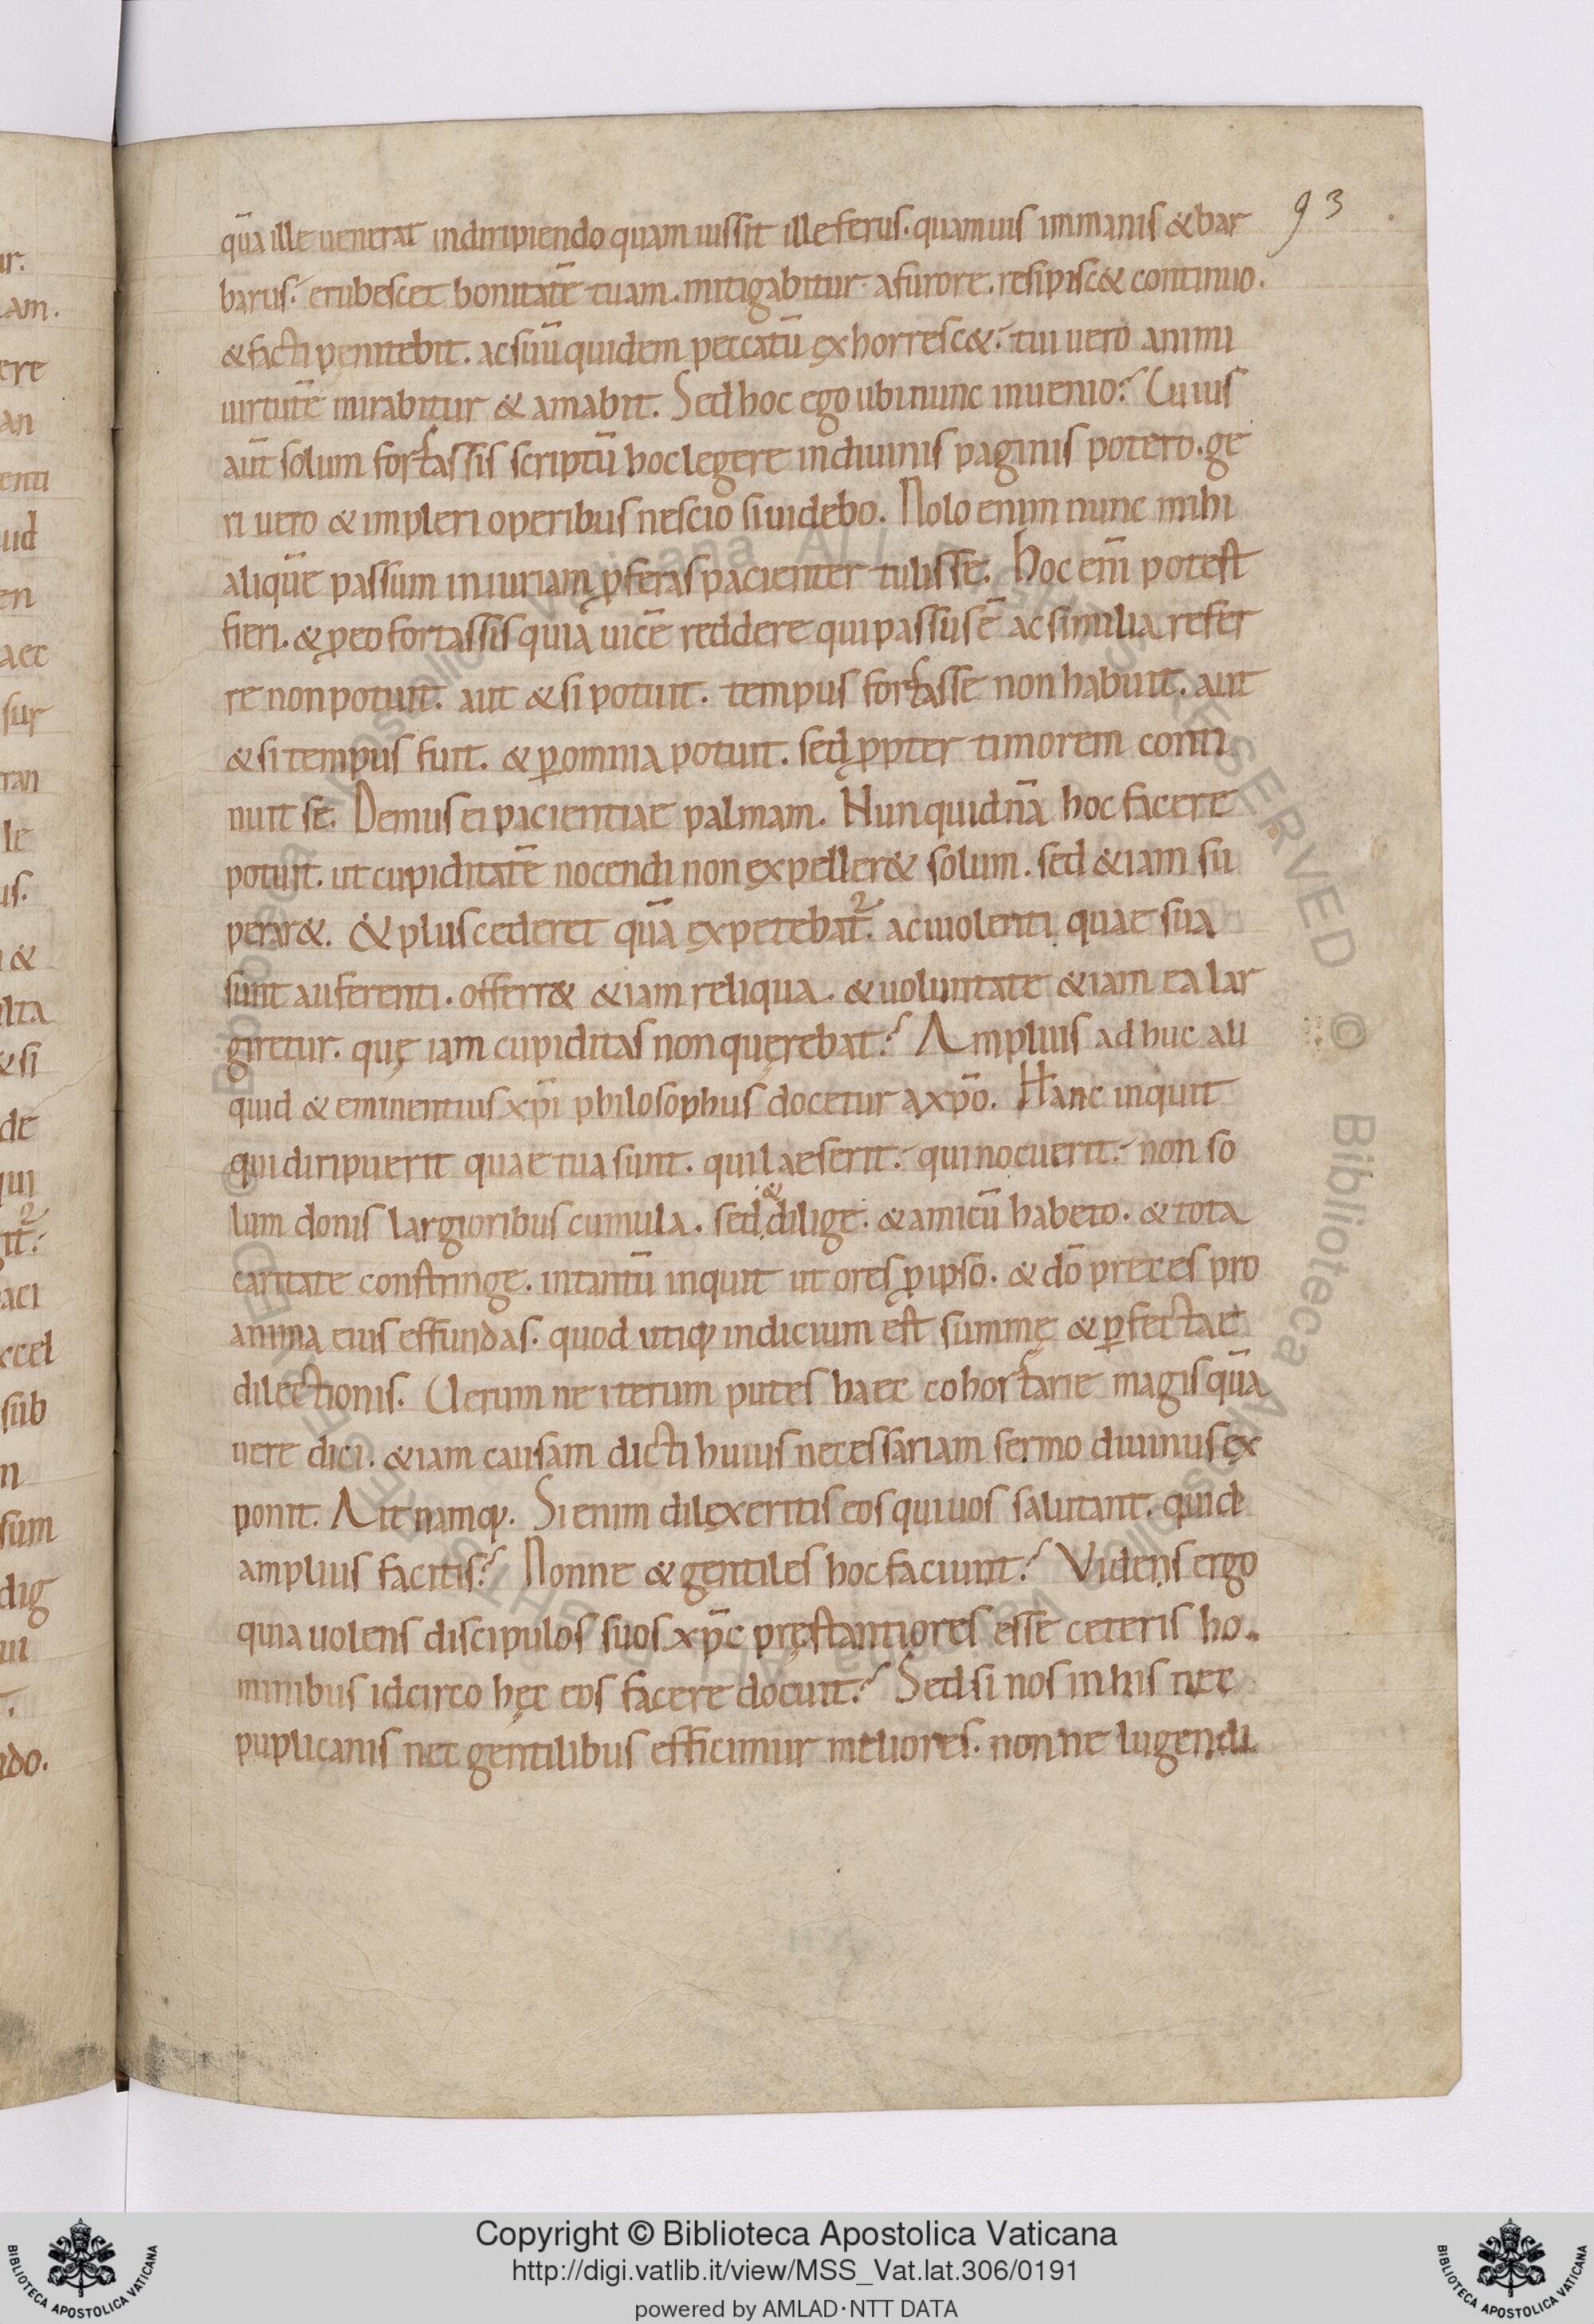 93
qua᷒ ille uenerat indiripiendo quam iussit ille ferus. quamuis immanis & bar
barus. erubescet bonitatē tuam. mitigabitur a furore. resipisc& continuo.
& facti penitebit. ac suū quidem peccatū exhorresc&. tui uero animi
uirtutē mirabitur & amabit. Sed hoc ego ubi nunc inuenio? Cuius
aūt solum fortassis scriptū hoc legere indiuinis paginis potero. ge
ri uero & impleri operibus nescio si uidebo. Nolo enim nunc mihi
aliquē passum iniuriam ꝓferas pacienter tulisse. Hoc eni᷒ potest
fieri. & ꝓeo fortassis quia uicē reddere qui passus ē ac similia refer
re non potuit. aut & si potuit. tempus fortasse non habuit. aut
& si tempus fuit. & ꝑomnia potuit. sed ꝓpter timorem conti
nuit se. Demus ei pacientiae palmam. Nunquid nā hoc facere
potuit. ut cupiditatē nocendi non expeller& solum. sed &iam su
perar&. & plus cederet quā expetebat᷒. ac uiolenti quae sua
sunt auferenti. offerr& &iam reliqua. & uoluntate &iam ea lar
giretur. quę iam cupiditas non quęrebat? Amplius ad huc ali
quid & eminentius xp̄i philosophus docetur a xp̄o. Hanc inquit
qui diripuerit quae tua sunt. qui laeserit. qui nocuerit. non so
lum donis largioribus cumula. sed & dilige. & amicū habeto. & tota
caritate constringe. intantū inquit ut ores ꝓipso. & dō preces pro
anima eius effundas. quod utiq; indicium est summę & ꝑfectae
dilectionis. Uerum ne iterum putes haec cohortarie magis quā
uere dici. &iam causam dicti huius necessariam sermo diuinus ex
ponit. Ait namq;. Si enim dilexeritis eos qui uos salutant. quid
amplius facitis? Nonne & gentiles hoc faciunt? Videns ergo
quia uolens discipulos suos xp̄c pręstantiores esse ceteris ho
minibus idcirco hęc eos facere docuit? Sed si nos in his nec
puplicanis nec gentilibus efficimur meliores. nonne lugendi
Copyright © Biblioteca Apostolica Vaticana
http://digi.vatlib.it/view/MSS_Vat.lat.306/0191
powered by AMLAD·NTT DATA